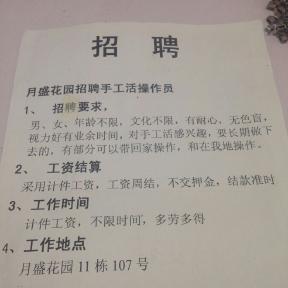 招 聘
月盛花园招聘手工活操作员
1、 招聘要求，
男、女、年龄不限，文化不限，有耐心、无色盲，
视力好有业余时间，对手工活感兴趣，要长期做下
去的，有部分可以带回家操作，和在我地操作。
2、 工资结算
采用计件工资，工资周结，不交押金，结款准时
3、工作时间
计件工资，不限时间，多劳多得
4、工作地点
月盛花园 11 栋 107 号